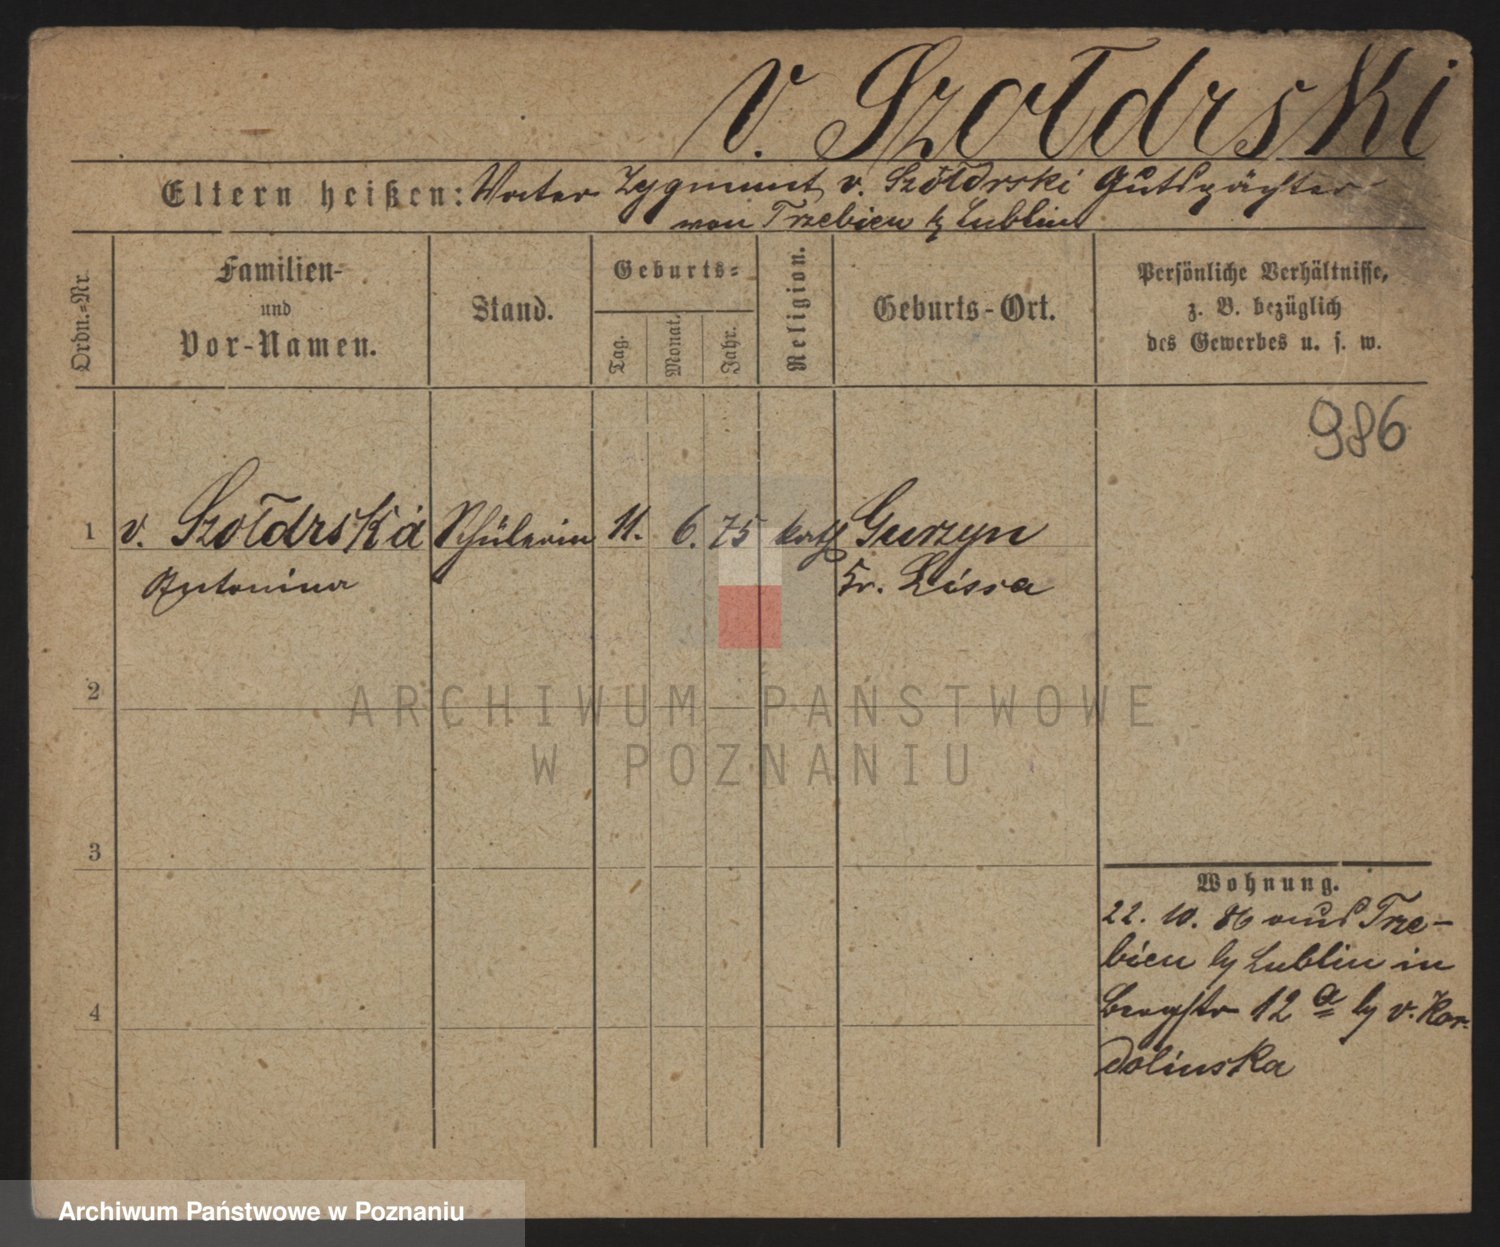 v. Szołdrski
Eltern heißen: Vater Zygmunt v. Szołdrski Gutspächter
von Trzebien b/ Lublin
Ordn.=Nr.
Familien-
und
Vor-Namen.
Stand.
Geburts=
Tag.
Monat.
Jahr.
Religion.
Geburts-Ort.
Persönliche Verhältnisse,
z. B. bezüglich
des Gewerbes u. s. w.
986
1 v. Szołdrska Schülerin 11. 6. 75 kath Gurzyn
Antonina Kr. Lissa
2
3
4
Wohnung.
22. 10. 86 aus Trze-
bien b/ Lublin in
Bergstr 12 a b/ v. Kar-
dolinska
ARCHIWUM PAŃSTWOWE
W POZNANIU
Archiwum Państwowe w Poznaniu